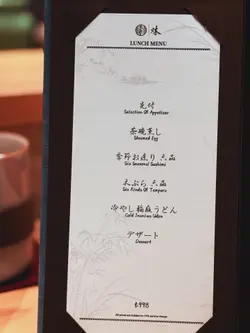 LUNCH MENU
先付
Selection Of Appetizer
茶碗蒸し
Steamed Egg
季節お造り 六品
Six Seasonal Sashimi
天ぷら 六品
Six Kinds Of Tempura
冷やし稲庭うどん
Cold Inaniwa Udon
デザート
Dessert